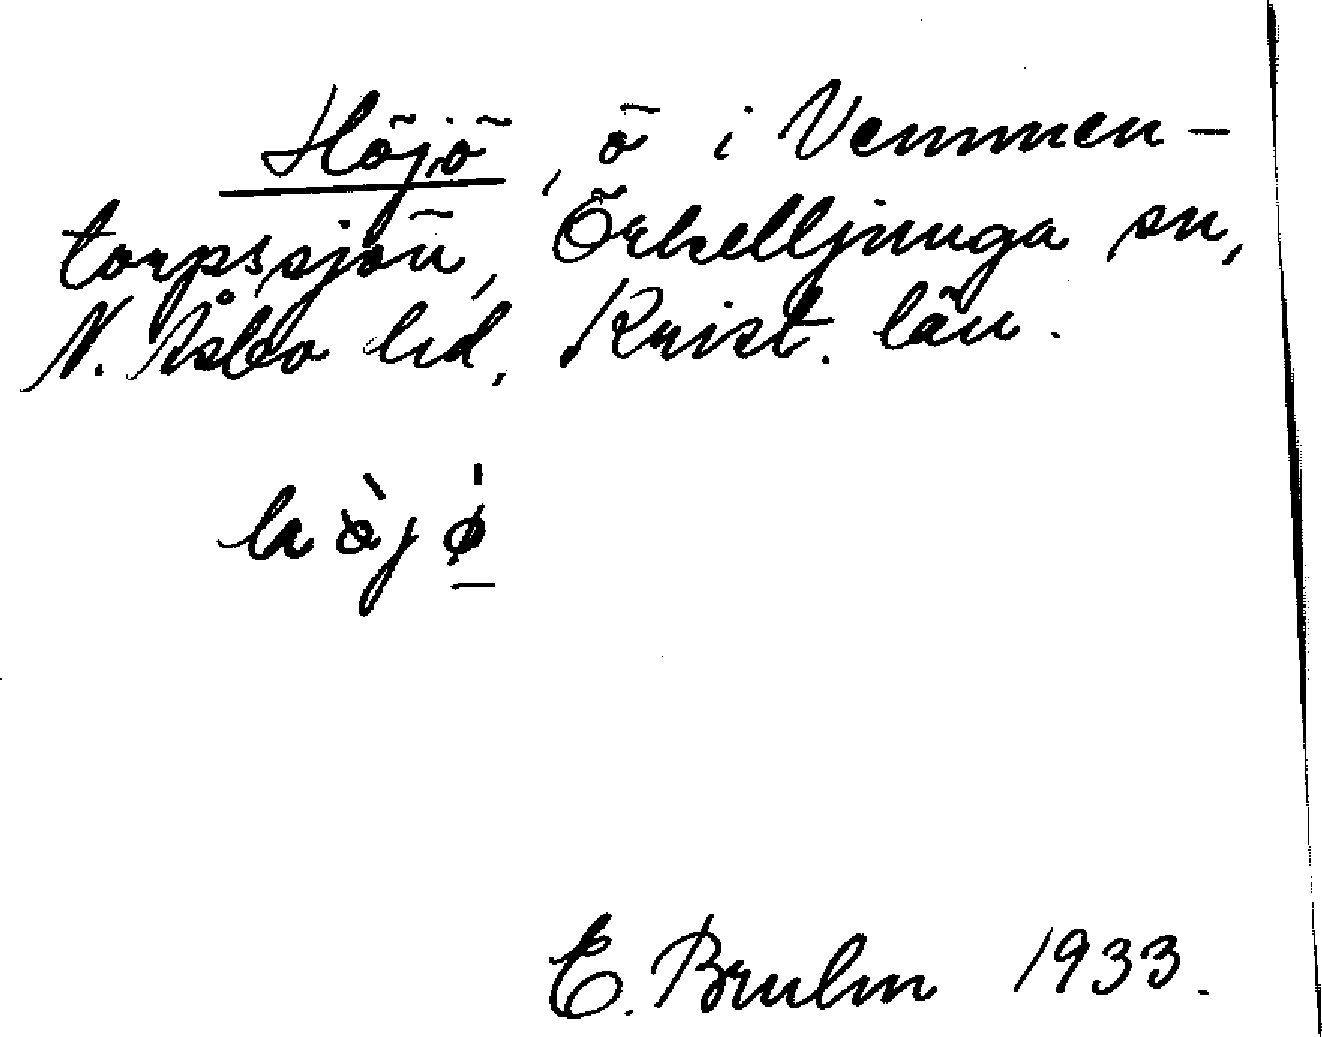 Höjö, ö i Vemmen-
torpssjön, Örkelljunga sn,
N. Åsbo hd, Krist. län.
E. Bruhn 1933.